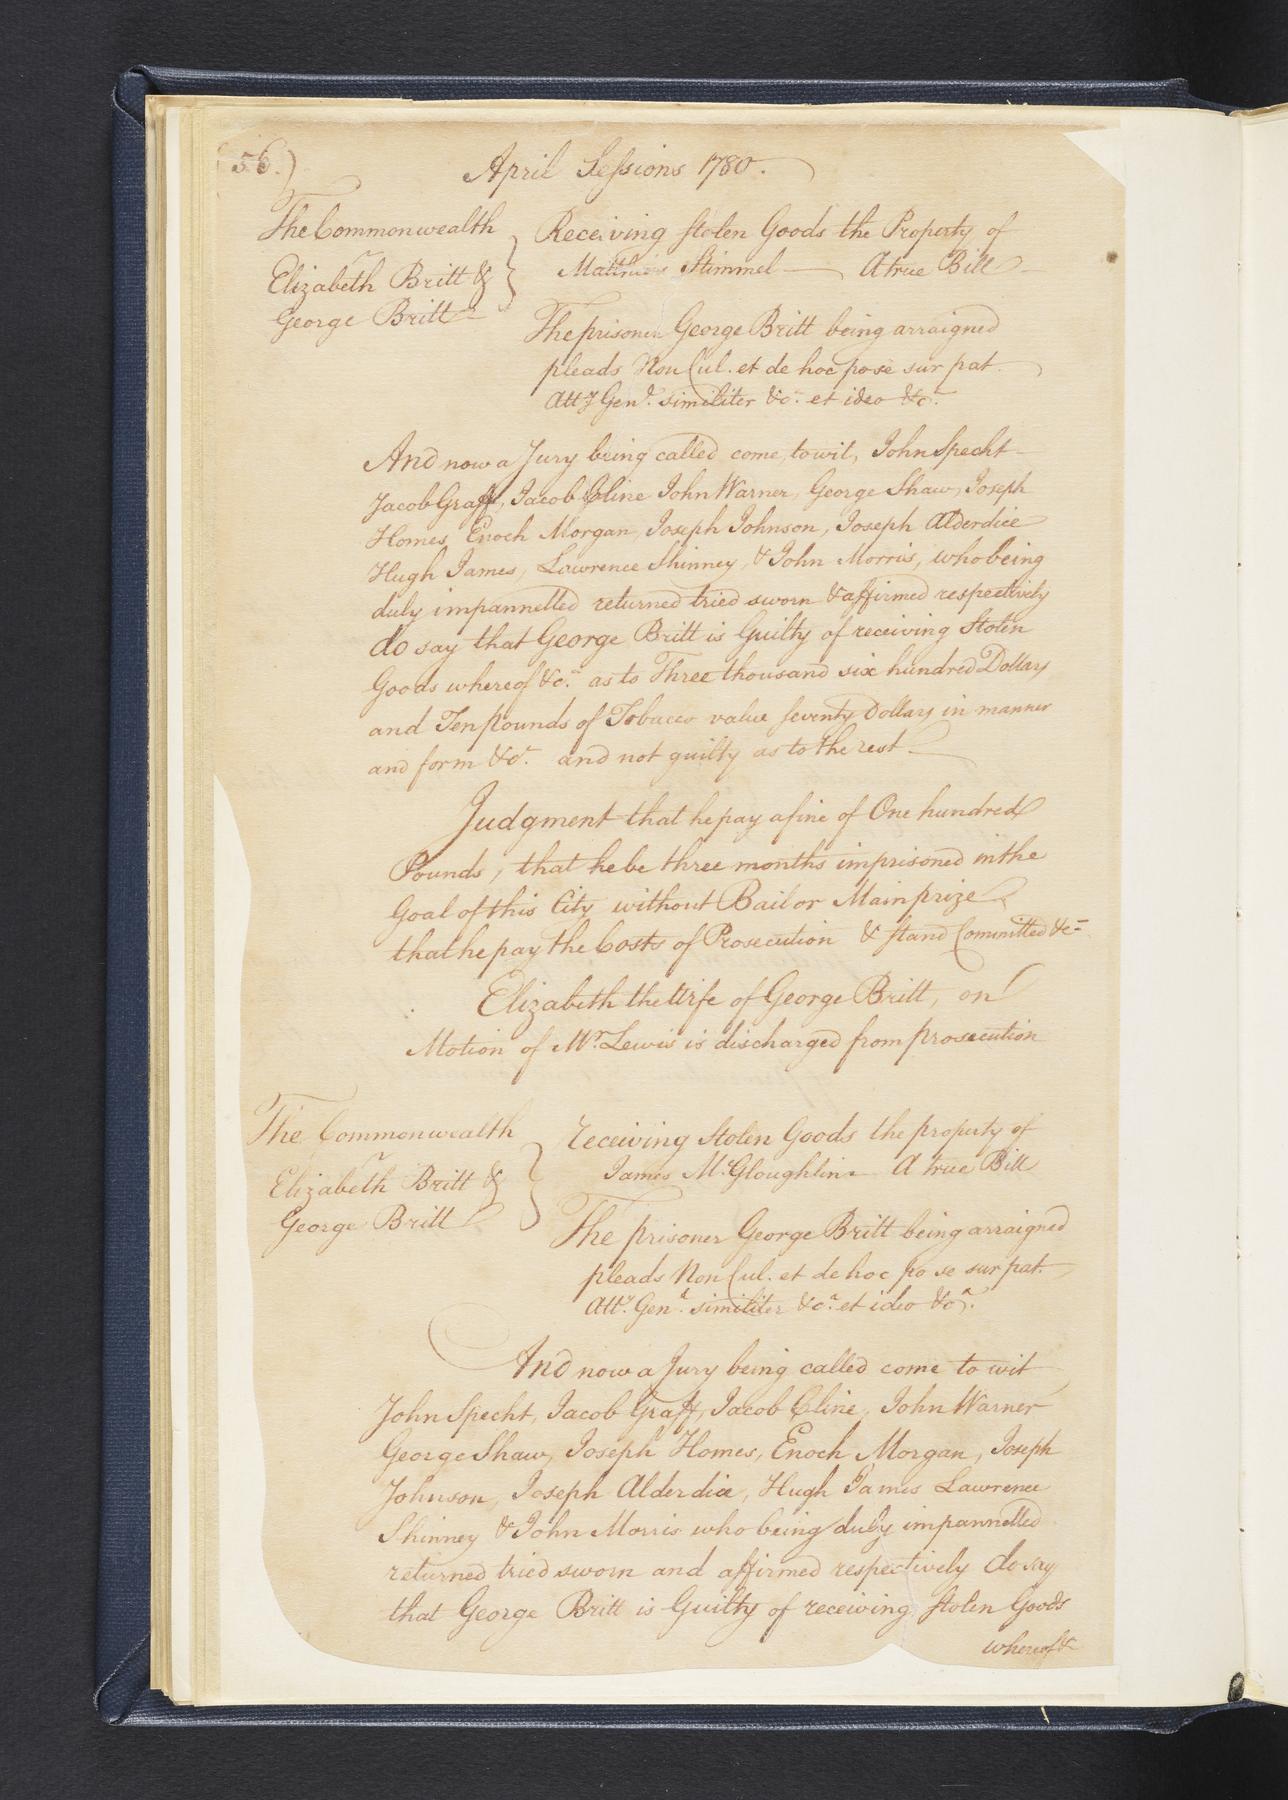 56.)
April Sessions 1780.
The Commonwealth
v
Elizabeth Britt &
George Britt
Receiving stolen Goods the Property of
Matthias Stimmel — A true Bill
The prisoner George Britt being arraigned
pleads Non Cul. et de hoc po se sur pat.
Atty Genl. similiter &c. et ideo &c.
And now a Jury being called come, to wit, John Specht
Jacob Graff, Jacob Cline John Warner, George Shaw, Joseph
Homes, Enoch Morgan, Joseph Johnson, Joseph Alderdice
Hugh James, Lawrence Shinney, & John Morris, who being
duly impannelled returned tried sworn & affirmed respectively
do say that George Britt is Guilty of receiving Stolen
Goods whereof &c. as to Three thousand six hundred Dollars
and Ten pounds of Tobacco value seventy Dollars in manner
and form &c. and not guilty as to the rest
Judgment that he pay a fine of One hundred
Pounds, that he be three months imprisoned in the
Goal of this City without Bail or Mainprize
that he pay the Costs of Prosecution & stand Committed &c
Elizabeth the Wife of George Britt, on
Motion of Mr. Lewis is discharged from prosecution
The Commonwealth
v
Elizabeth Britt &
George Britt
receiving Stolen Goods the property of
James McGloughlin A true Bill
The prisoner George Britt being arraigned
pleads Non Cul. et de hoc po se sur pat.
Atty. Genl. similiter &c. et ideo &c.
And now a Jury being called come to wit
John Specht, Jacob Graff, Jacob Cline, John Warner
George Shaw, Joseph Homes, Enoch Morgan, Joseph
Johnson, Joseph Alderdice, Hugh James Lawrence
Shinney & John Morris who being duly impannelled
returned tried sworn and affirmed respectively do say
that George Britt is Guilty of receiving stolen Goods
whereof &c